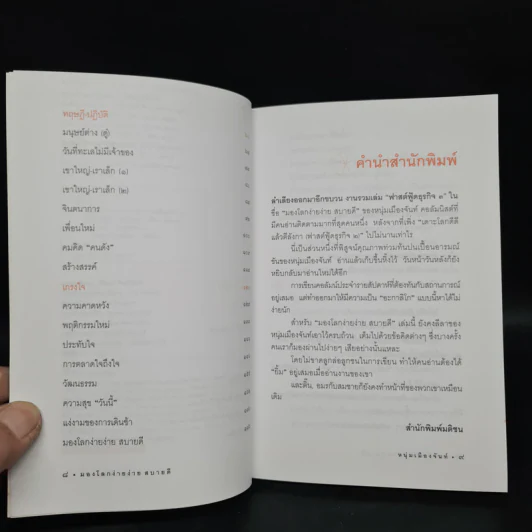 ทฤษฎี-ปฏิบัติ
มนุษย์ต่าง (คู่)
วันที่ทะเลไม่มีเจ้าของ
เขาใหญ่-เราเล็ก (๑)
เขาใหญ่-เราเล็ก (๒)
จินตนาการ
เพื่อนใหม่
คมคิด "คนดัง"
สร้างสรรค์
เกรงใจ
ความคาดหวัง
พฤติกรรมใหม่
ประทับใจ
การตลาดใจถึงใจ
วัฒนธรรม
ความสุข "วันนี้"
แง่งามของการเดินช้า
มองโลกง่ายง่าย สบายดี
๘ • มองโลกง่ายง่าย สบายดี
คำนำสำนักพิมพ์
ลำเลียงออกมาอีกขบวน งานรวมเล่ม "ฟาสต์ฟู้ดธุรกิจ ๓" ใน
ชื่อ "มองโลกง่ายง่าย สบายดี" ของหนุ่มเมืองจันท์ คอลัมนิสต์ที่
มีคนอ่านติดตามมากที่สุดคนหนึ่ง หลังจากที่เพิ่ง
ไปไม่นานเท่าไร
นี่เป็นส่วนหนึ่งที่พิสูจน์คุณภาพท่วมท้นปนเปื้อนอารมณ์
ขันของหนุ่มเมืองจันท์ อ่านแล้วเก็บขึ้นหิ้งไว้ วันหน้าวันหลังก็ยัง
หยิบกลับมาอ่านใหม่ได้อีก
การเขียนคอลัมน์ประจำรายสัปดาห์ที่ต้องทันกับสถานการณ์
อยู่เสมอ แต่ทำออกมาให้มีความเป็น "อะกาลิโก" แบบนี้หาได้ไม่
ง่ายนัก
สำหรับ "มองโลกง่ายง่าย สบายดี" เล่มนี้ ยังคงลีลาของ
หนุ่มเมืองจันท์เอาไว้ครบถ้วน เต็มไปด้วยข้อคิดต่างๆ ซึ่งบางครั้ง
คนเราก็มองผ่านไปง่ายๆ เสียอย่างนั้นแหละ
โดยไม่ขาดลูกล่อลูกชนในการเขียน ทำให้คนอ่านต้องได้
"ยิ้ม" อยู่เสมอเมื่ออ่านงานของเขา
และตี๋น, อมรกับสมชายก็ยังคงทำหน้าที่ของพวกเขาเหมือน
เดิม
สำนักพิมพ์มติชน
หนุ่มเมืองจันท์ • ๙